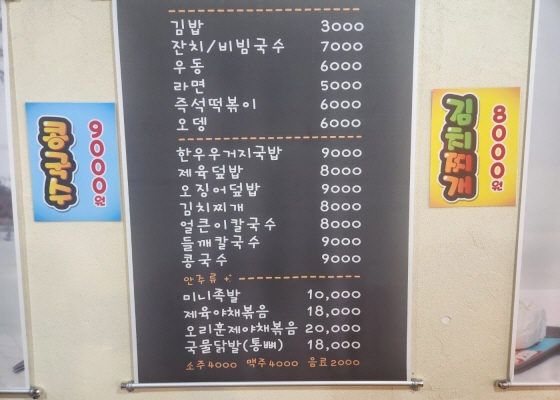 김밥 3000
잔치/비빔국수 7000
우동 6000
라면 5000
즉석떡볶이 6000
오뎅 6000
한우우거지국밥 9000
제육덮밥 8000
오징어덮밥 9000
김치찌개 8000
얼큰이칼국수 8000
들깨칼국수 9000
콩국수 9000
안주류
미니족발 10,000
제육야채볶음 18,000
오리훈제야채볶음 20,000
국물닭발(통뼈) 18,000
소주4000 맥주4000 음료2000
9000원
8000원